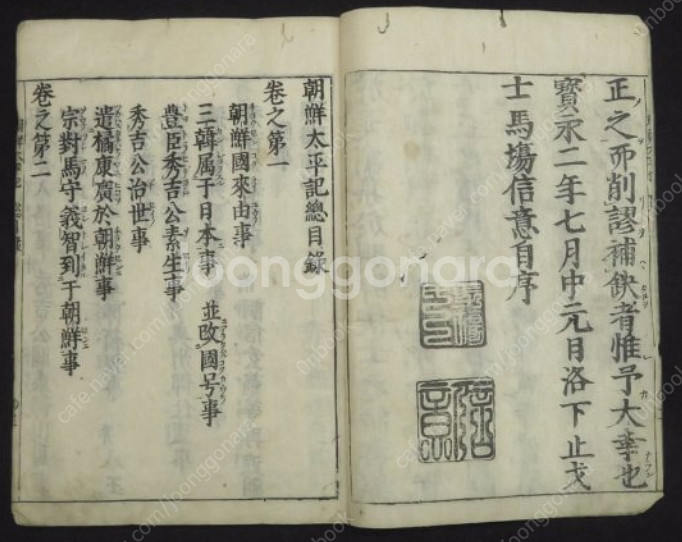 正之而削謬補鈌者惟予大幸也
寳永二年七月中元日洛下止戈
士馬塲信意自序
朝鮮太平記總目録
卷之第一
朝鮮國來由事
三韓属于日本事 並改國号事
豊臣秀吉公素生事
秀吉公治世事
遣橘康廣於朝鮮事
宗對馬守義智到于朝鮮事
卷之第二
joonggonara